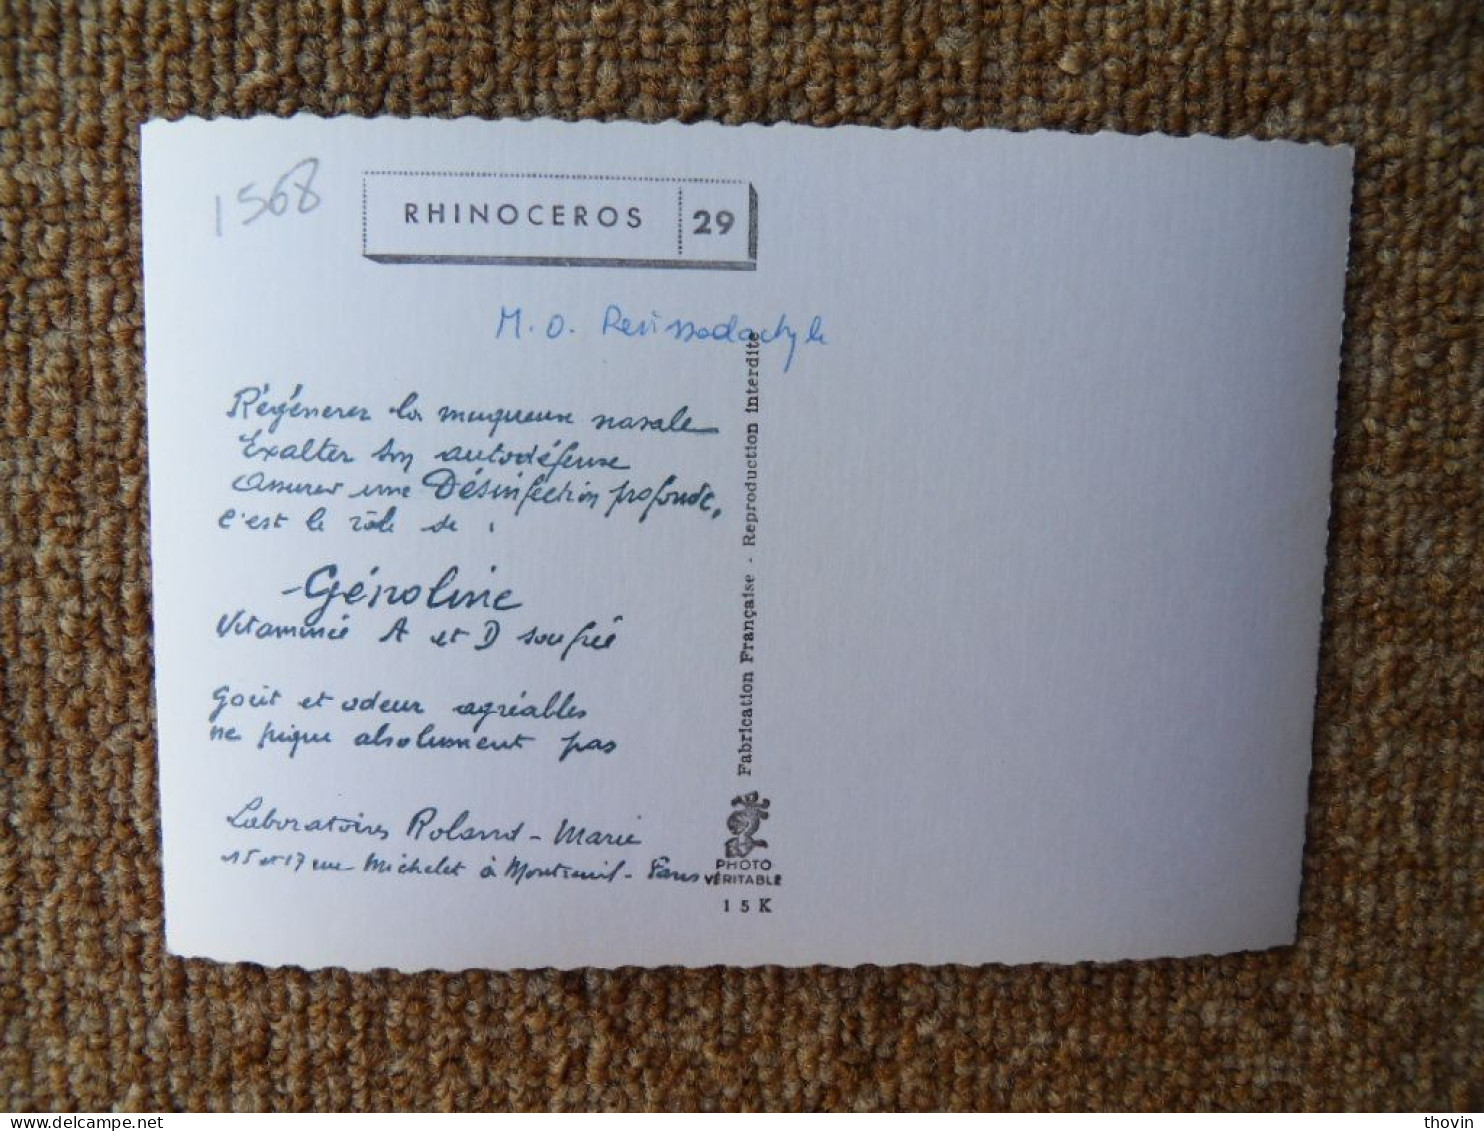 1568
RHINOCEROS 29
M. O. Périssodactyle
Régénerer la muqueuse nasale
Exalter son autodéfense
assurer une Désinfection profonde,
c'est le rôle de :
Génoline
Vitaminée A et D soufrée
goût et odeur agréables
ne pique absolument pas
Laboratoires Roland-Marie
15 et 17 rue Michelet à Montreuil - Paris
Fabrication Française - Reproduction interdite
PHOTO
VÉRITABLE
15K
thovin